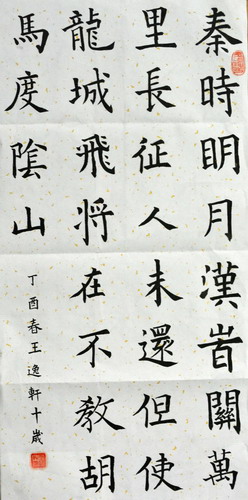 秦時眀月漢旹關萬
里長征人未還但使
龍城飛将在不教胡
馬度陰山
丁酉春王逸軒十歲